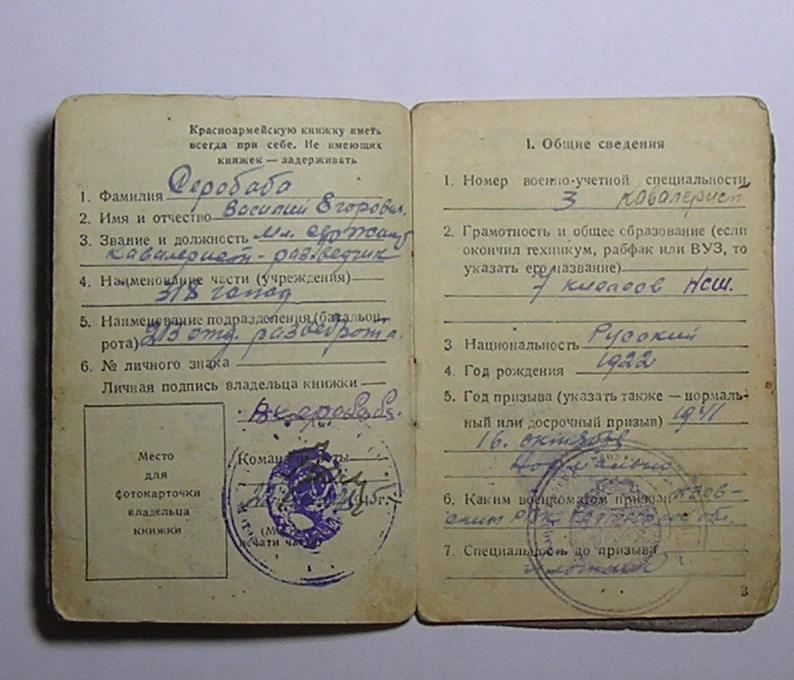 Красноармейскую книжку иметь
всегда при себе. Не имеющих
книжек — задерживать
1. Фамилия Серобаба
2. Имя и отчество Василий Егорович.
3. Звание и должность мл. сержант
кавалерист-разведчик
4. Наименование части (учреждения)
318
5. Наименование подразделения (батальон,
рота) 213 отд. разведрота.
6. № личного знака
Личная подпись владельца книжки
ВСеробаба.
Место
для
фотокарточки
владельца
книжки
Командир роты
45г.
печати части
I. Общие сведения
1. Номер военно-учетной специальности
3 кавалерист
2. Грамотность и общее образование (если
окончил техникум, рабфак или ВУЗ, то
указать его название)
7 классов НСШ.
3 Национальность Русский
4. Год рождения 1922
5. Год призыва (указать также — нормаль-
ный или досрочный призыв) 1941
16. октября
Нормально
6. Каким военкоматом призван Азов-
ским РВК Ростовской обл.
7. Специальность до призыва
3